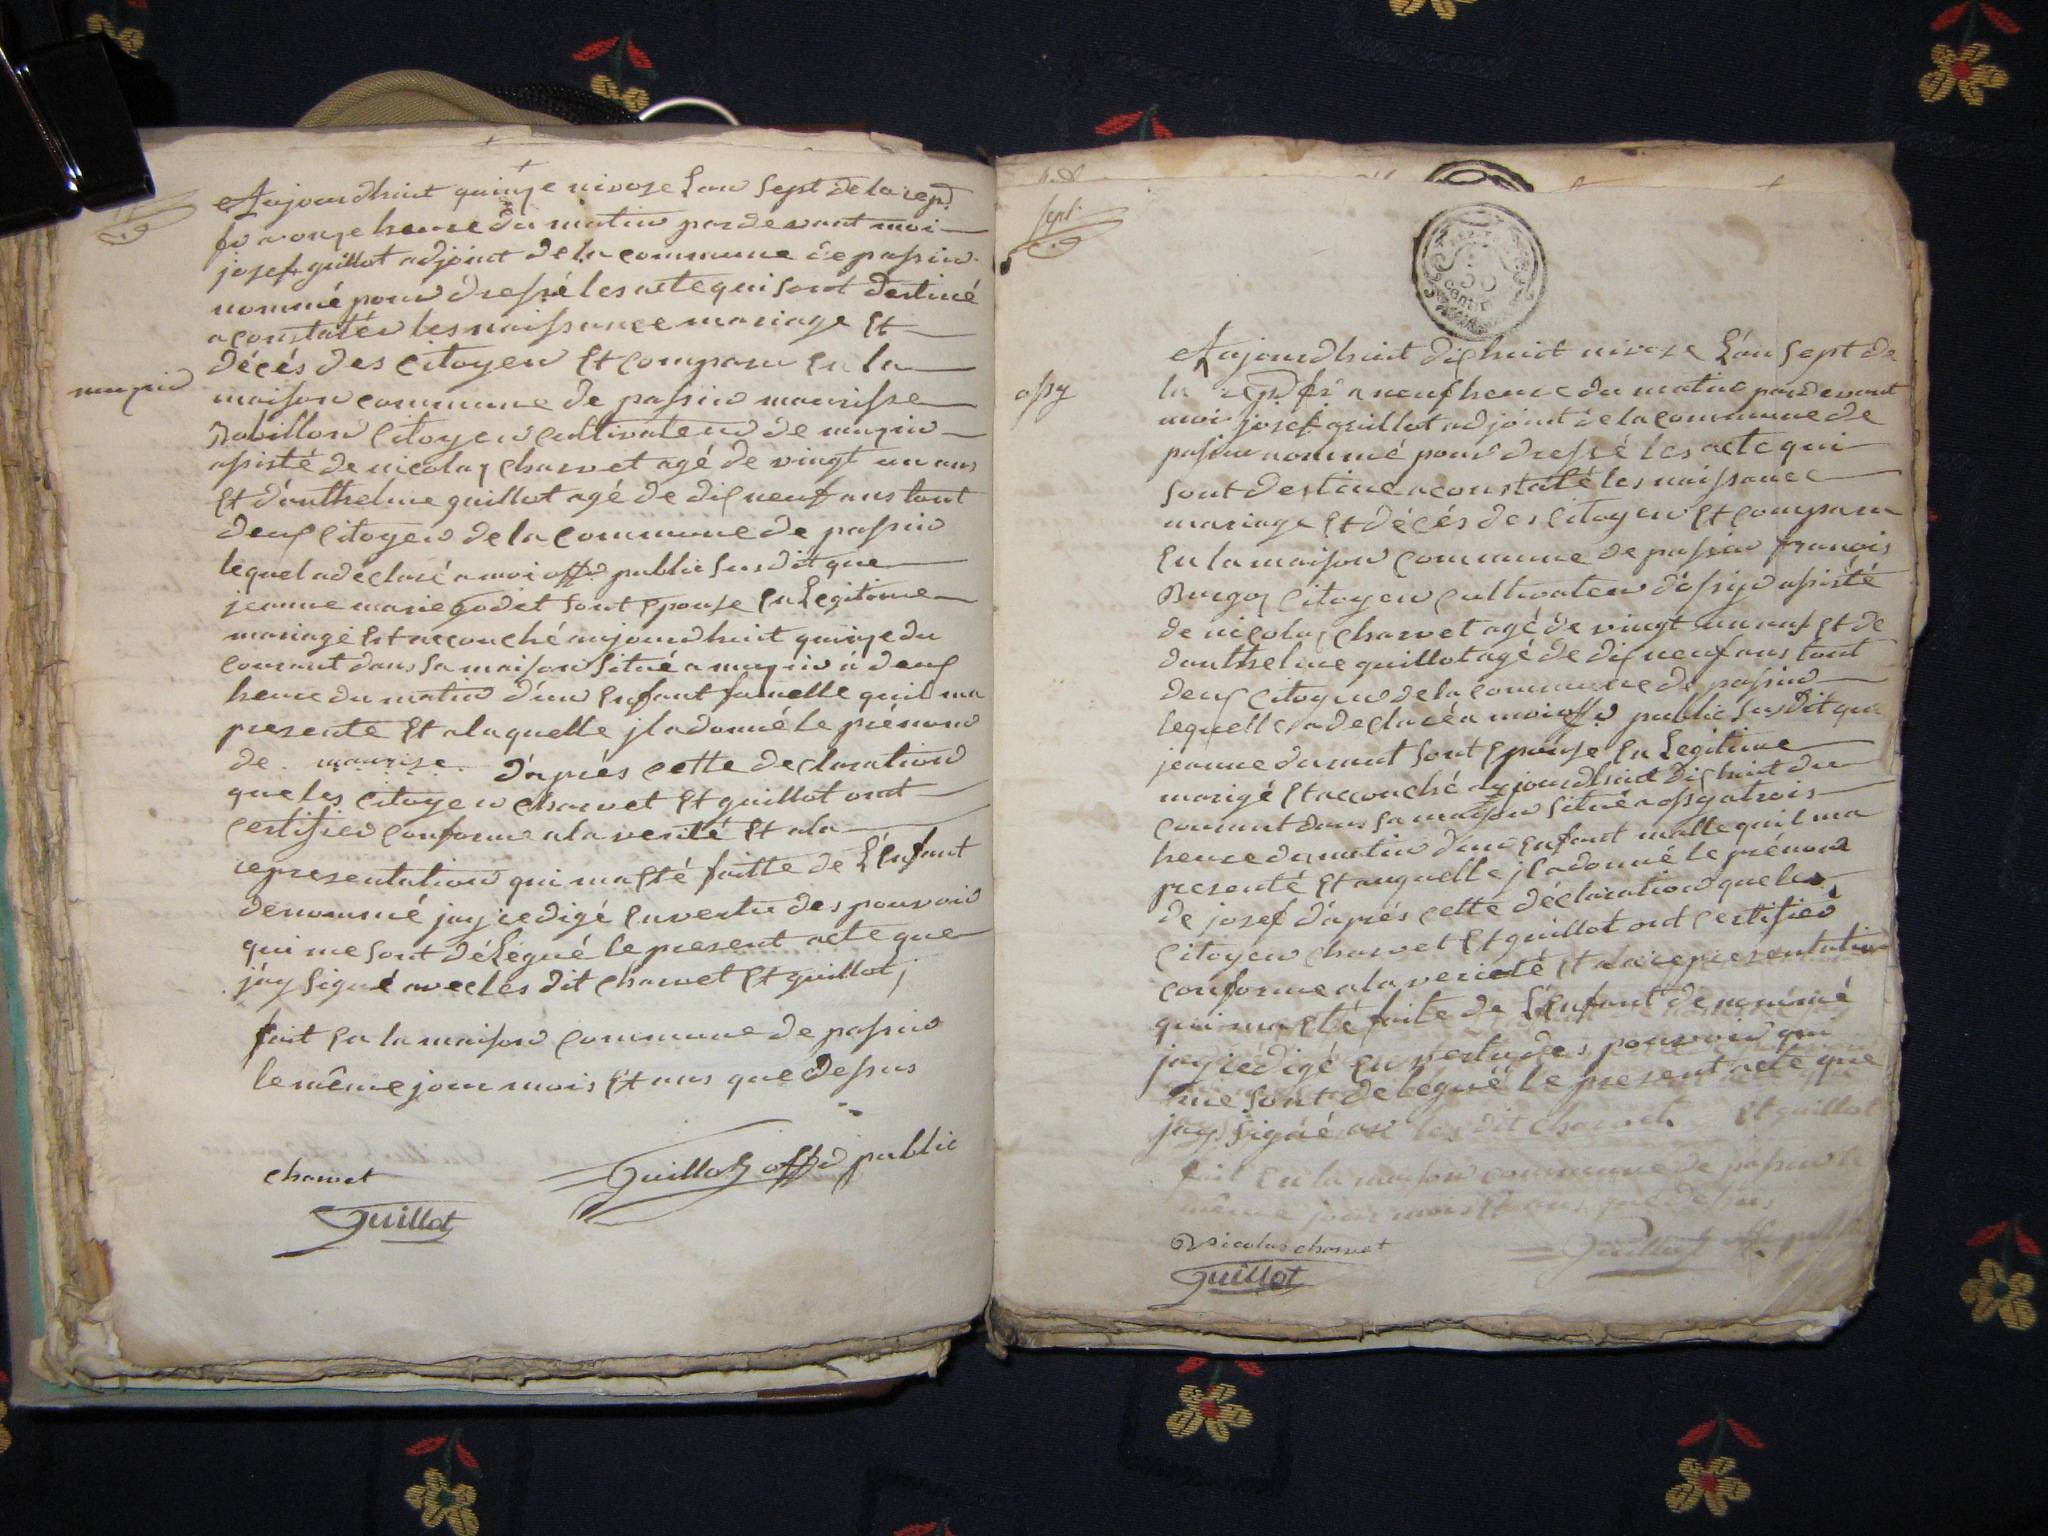 Aujourdhuit quinze nivose Lan Sept de la rep.
fr a onze heure du matin pardevant moi
josef guillot adjoint de la commune de passin
nommé pour dressé les acte qui sont destiné
a constatér les naissance mariage Et
décés des Citoyen Et comparu En la
maison commune de passin maurisse
Robillon Citoyen cultivateur de
assisté de nicolas charvet agé de vingt un ans
Et d'anthelme guillot agé de dix neuf ans tout
deux Citoyen de la commune de passin
lequel a declaré a moi offr public susdit que
jeanne marie godet sont Epouse En Legitime
mariage Est accouché aujourdhuit quinze du
courant dans sa maison situé a a deux
heure du matin d'un Enfant famelle quil ma
presenté Et a laquelle jl a donné le prénom
de maurise d'aprés cette declaration
que les citoyen charvet Et guillot ont
certifier conforme a la verité Et a la
representation qui ma Eté faitte de L'Enfant
denommé jay redigé En vertu des pouvoir
qui me sont déLégué le present acte que
jay signé avec les dit charvet Et guillot
fait En la maison commune de passin
le même jour mois Et ans que dessus
charvet
Guillot offr public
Guillot
sept
ossy
Aujourdhuit dix huit nivose L'an Sept de
la rep. fr a neuf heure du matin pardevant
moi josef guillot adjoint de la commune de
passin nommé pour dressé les acte qui
sont destiné a constaté les naissance
mariage Et décés des Citoyen Et comparu
En la maison commune de passin franois
Burgos Citoyen cultivateur d'ossy assisté
de nicolas charvet agé de vingt un ans Et de
d'anthelme guillot agé de dix neuf ans tout
deux Citoyen de la commune de passin
lequelle a declaré a moi offr public susdit que
jeanne dumat sont Epouse En Legitime
marigé Et accouché aujourdhuit dix huit du
courant dans sa maison situé a ossy a trois
heure du matin d'un Enfant malle quil ma
presenté Et auquelle jl a donné le prénom
de josef d'aprés cette déclaration que les
Citoyen charvet Et guillot ont certifier
conforme a la verieté Et a la representation
qui ma Eté faite de L'Enfant denommé
jay redigé En vertu des pouvoir qui
me sont delegué le present acte que
jay signé les dit charvet Et guillot
fait En la maison commune de passin le
même jour mois Et ans que dessus
Nicolas charvet
Guillot offr public
Guillot